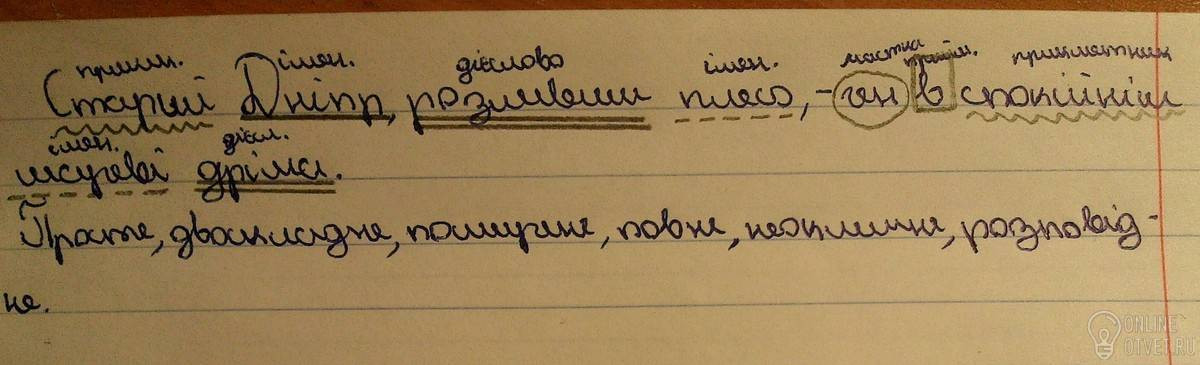 прикм. імен. дієслово імен. частка прийм. прикметник
Старий Дніпр, розливши плесо, - ген в спокійнім
імен. дієсл.
шумові дріма.
Просте, двоскладне, поширене, повне, неоклична, розповід-
не.
ONLINE
OTVET.RU